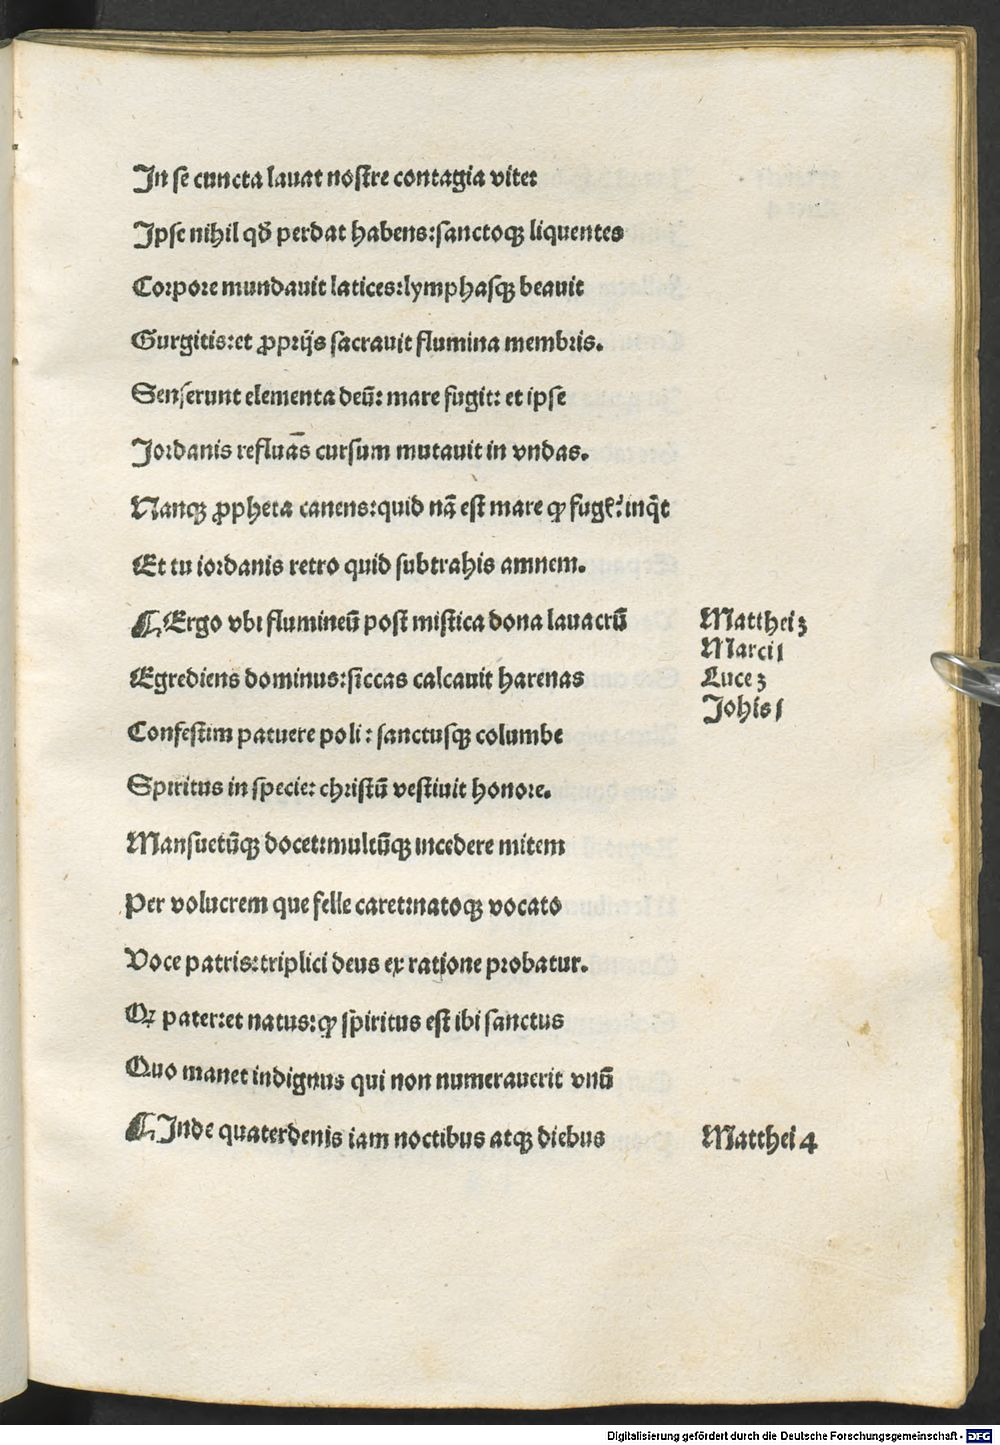 In se cuncta lauat nostre contagia vite:
Ipse nihil qđ perdat habens:sanctoqꝫ liquentes
Corpore mundauit latices:lymphasqꝫ beauit
Gurgitis:et ꝓprijs sacrauit flumina membris.
Senserunt elementa deū: mare fugit: et ipse
Jordanis refluās cursum mutauit in vndas.
Nanqꝫ ꝓpheta canens:quid nā est mare ꝙ fugĕ? inq̄t
Et tu iordanis retro quid subtrahis amnem.
¶Ergo vbi flumineū post mistica dona lauacrū
Matthei 3
Marci 1
Egrediens dominus:siccas calcauit harenas
Luce 3
Johis 1
Confestim patuere poli: sanctusqꝫ columbe
Spiritus in specie: christū vestiuit honore.
Mansuetūqꝫ docet:multūqꝫ incedere mitem
Per volucrem que felle caret:natoqꝫ vocato
Voce patris:triplici deus ex ratione probatur.
Qꝛ pater:et natus:ꝙ spiritus est ibi sanctus
Quo manet indignus qui non numerauerit vnū
¶Inde quaterdenis iam noctibus atqꝫ diebus
Matthei 4
Digitalisierung gefördert durch die Deutsche Forschungsgemeinschaft - DFG